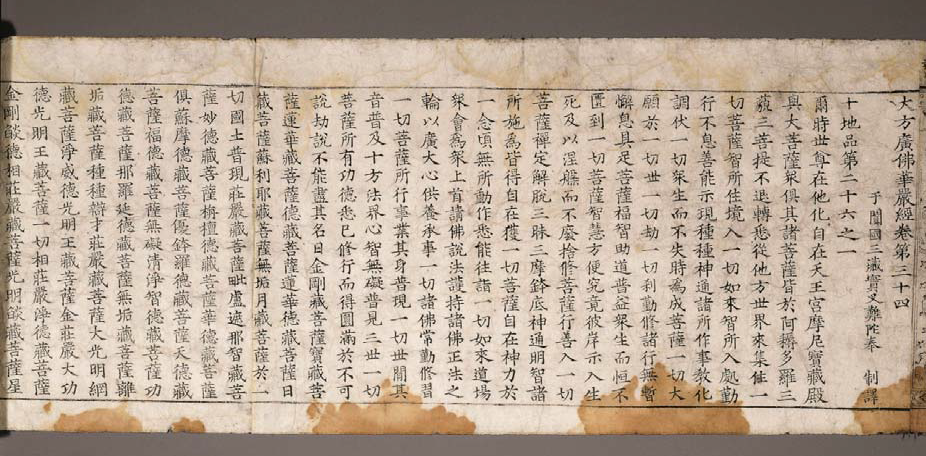 大方廣佛華嚴經卷第三十四
于闐國三藏實叉難陀奉 制譯
十地品第二十六之一
爾時世尊在他化自在天王宮摩尼寶藏殿
與大菩薩衆俱其諸菩薩皆於阿耨多羅三
藐三菩提不退轉悉從他方世界來集住一
切菩薩智所住境入一切如來智所入處勤
行不息善能示現種種神通諸所作事教化
調伏一切衆生而不失時為成菩薩一切大
願於一切世一切劫一切刹勤修諸行無暫
懈息具足菩薩福智助道普益衆生而恒不
匱到一切菩薩智慧方便究竟彼岸示入生
死及以涅槃而不廢捨修菩薩行善入一切
菩薩禪定解脫三昧三摩鉢底神通明智諸
所施為皆得自在獲一切菩薩自在神力於
一念頃無所動作悉能往詣一切如來道場
衆會為衆上首請佛說法護持諸佛正法之
輪以廣大心供養承事一切諸佛常勤修習
一切菩薩所行事業其身普現一切世間其
音普及十方法界心智無礙普見三世一切
菩薩所有功德悉已修行而得圓滿於不可
說劫說不能盡其名曰金剛藏菩薩寶藏菩
薩蓮華藏菩薩德藏菩薩蓮華德藏菩薩日
藏菩薩蘇利耶藏菩薩無垢月藏菩薩於一
切國土普現莊嚴藏菩薩毗盧遮那智藏菩
薩妙德藏菩薩栴檀德藏菩薩華德藏菩薩
俱蘇摩德藏菩薩優鉢羅德藏菩薩天德藏
菩薩福德藏菩薩無礙清淨智德藏菩薩功
德藏菩薩那羅延德藏菩薩無垢藏菩薩離
垢藏菩薩種種辯才莊嚴藏菩薩大光明網
藏菩薩淨威德光明王藏菩薩金莊嚴大功
德光明王藏菩薩一切相莊嚴淨德藏菩薩
金剛燄德相莊嚴藏菩薩光明燄藏菩薩星